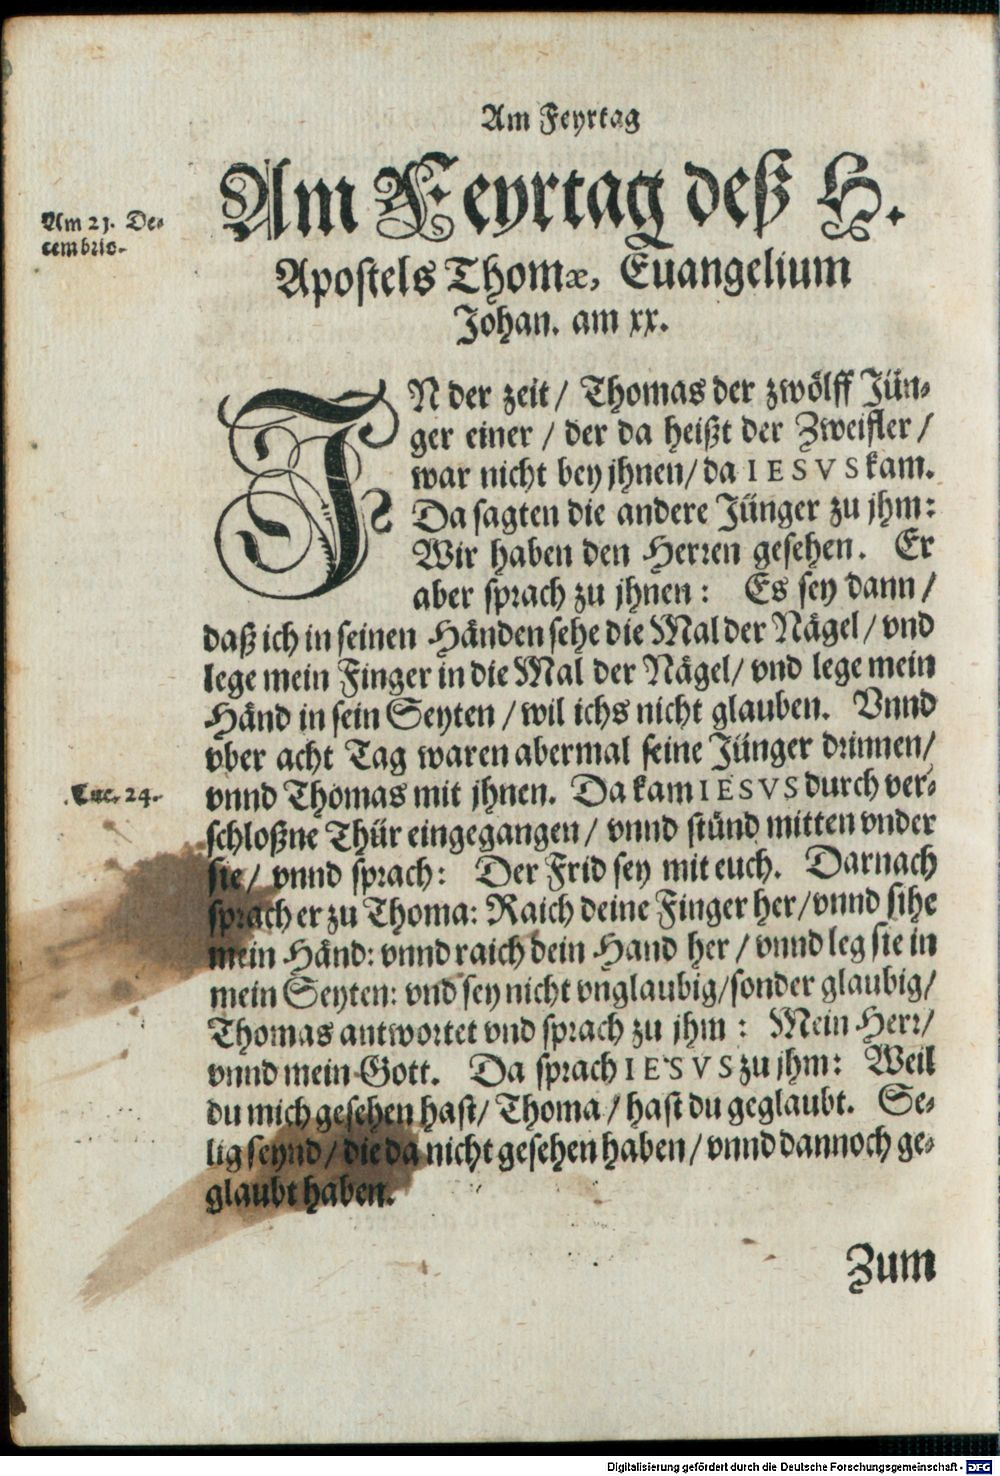 Am Feyrtag
Am Feyrtag deß H.
Am 21. De-
cembris.
Apostels Thomæ, Euangelium
Johan. am xx.
IN der zeit / Thomas der zwölff Jün-
ger einer / der da heißt der Zweifler /
war nicht bey jhnen / da IESVS kam.
Da sagten die andere Jünger zu jhm:
Wir haben den Herren gesehen. Er
aber sprach zu jhnen: Es sey dann /
daß ich in seinen Händen sehe die Mal der Nägel / vnd
lege mein Finger in die Mal der Nägel / vnd lege mein
Händ in sein Seyten / wil ichs nicht glauben. Vnnd
vber acht Tag waren abermal seine Jünger drinnen /
vnnd Thomas mit jhnen. Da kam IESVS durch ver-
Luc. 24.
schloßne Thür eingegangen / vnnd stünd mitten vnder
sie / vnnd sprach: Der Frid sey mit euch. Darnach
sprach er zu Thoma: Raich deine Finger her / vnnd sihe
mein Händ: vnnd raich dein Hand her / vnnd leg sie in
mein Seyten: vnd sey nicht vnglaubig / sonder glaubig /
Thomas antwortet vnd sprach zu jhm: Mein Herr /
vnnd mein Gott. Da sprach IESVS zu jhm: Weil
du mich gesehen hast / Thoma / hast du geglaubt. Se-
lig seynd / die da nicht gesehen haben / vnnd dannoch ge-
glaubt haben.
Zum
Digitalisierung gefördert durch die Deutsche Forschungsgemeinschaft - DFG